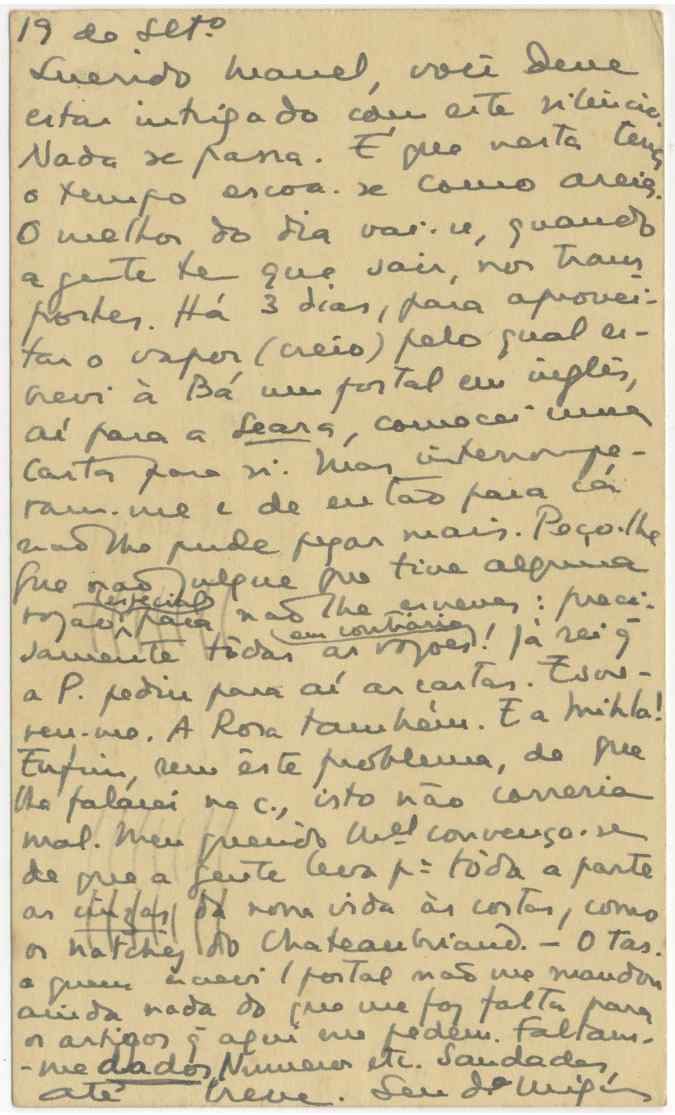 19 de Setº
Querido Manuel, você deve
estar intrigado com este silêncio.
Nada se passa. É que nesta terra
o tempo escoa-se como areia.
O melhor do dia vai-se, quando
a gente tem que sair, nos trans
portes. Há 3 dias, para aprovei-
tar o vapor (creio) pelo qual es-
crevi à Bá um postal em inglês,
aí para a Seara, comecei uma
carta para si. Mas interrompe-
ram-me e de então para cá
não lhe pude pegar mais. Peço-lhe
que não julgue que tive alguma
razão especial para não lhe escrever: preci-
samente tôdas as razões em contrário! Já sei q
a P. pediu para aí as cartas. Escre-
veu-me. A Rosa também. E a
Enfim, sem êste problema, de que
lhe falarei na c., isto não correria
mal. Meu querido Mel convença-se
de que a gente leva pª tôda a parte
as cinzas da nossa vida às costas, como
os natchez do Chateaubriand. – O Tas.
a quem escrevi 1 postal não me mandou
ainda nada do que me faz falta para
os artigos q aqui me pedem. Faltam-
-me dados, Números etc. Saudades,
até breve. Seu